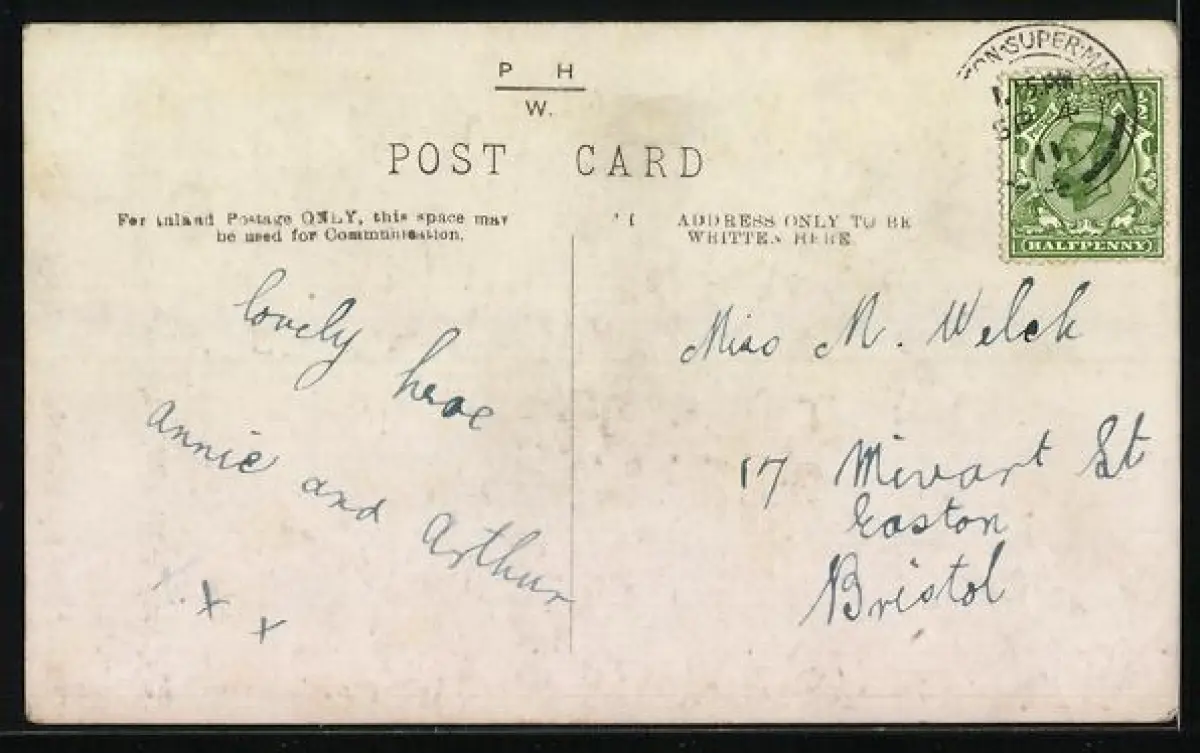 P H
W.
POST CARD
For Inland Postage ONLY, this space may
be used for Communication.
ADDRESS ONLY TO BE
WRITTEN HERE
TON-SUPER-MARE
15 PM
4
11
HALFPENNY
lovely here
annie and Arthur
x. x x
Miss M. Welch
17 Mivart St
Easton
Bristol